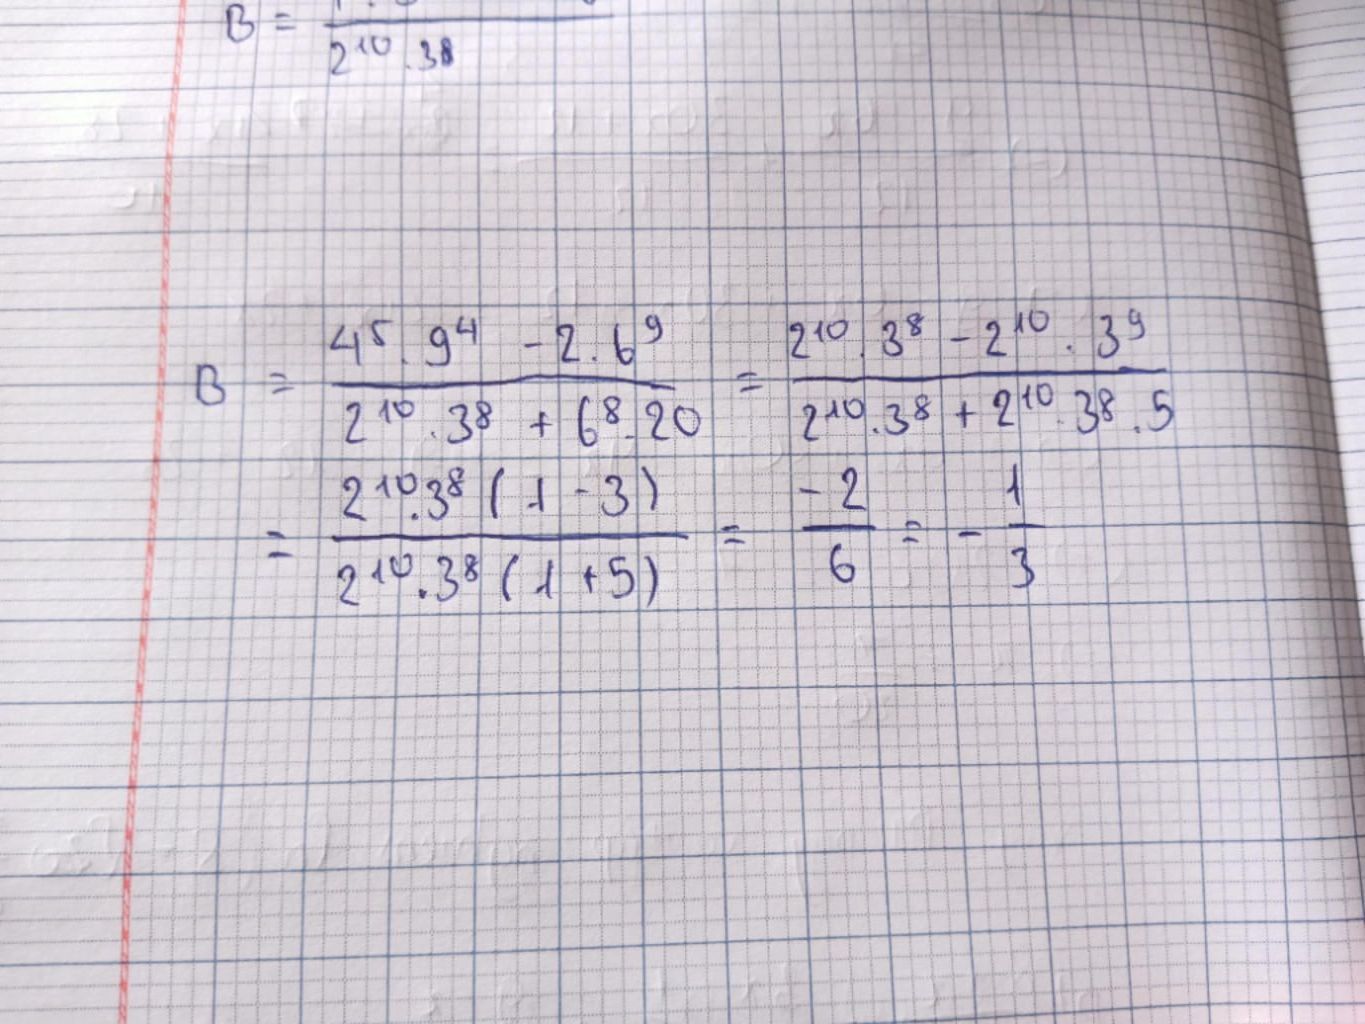 B =
2^10 . 3^8
B = (4^5 . 9^4 - 2 . 6^9) / (2^10 . 3^8 + 6^8 . 20) = (2^10 . 3^8 - 2^10 . 3^9) / (2^10 . 3^8 + 2^10 . 3^8 . 5)
= (2^10 . 3^8 (1 - 3)) / (2^10 . 3^8 (1 + 5)) = -2 / 6 = - 1 / 3